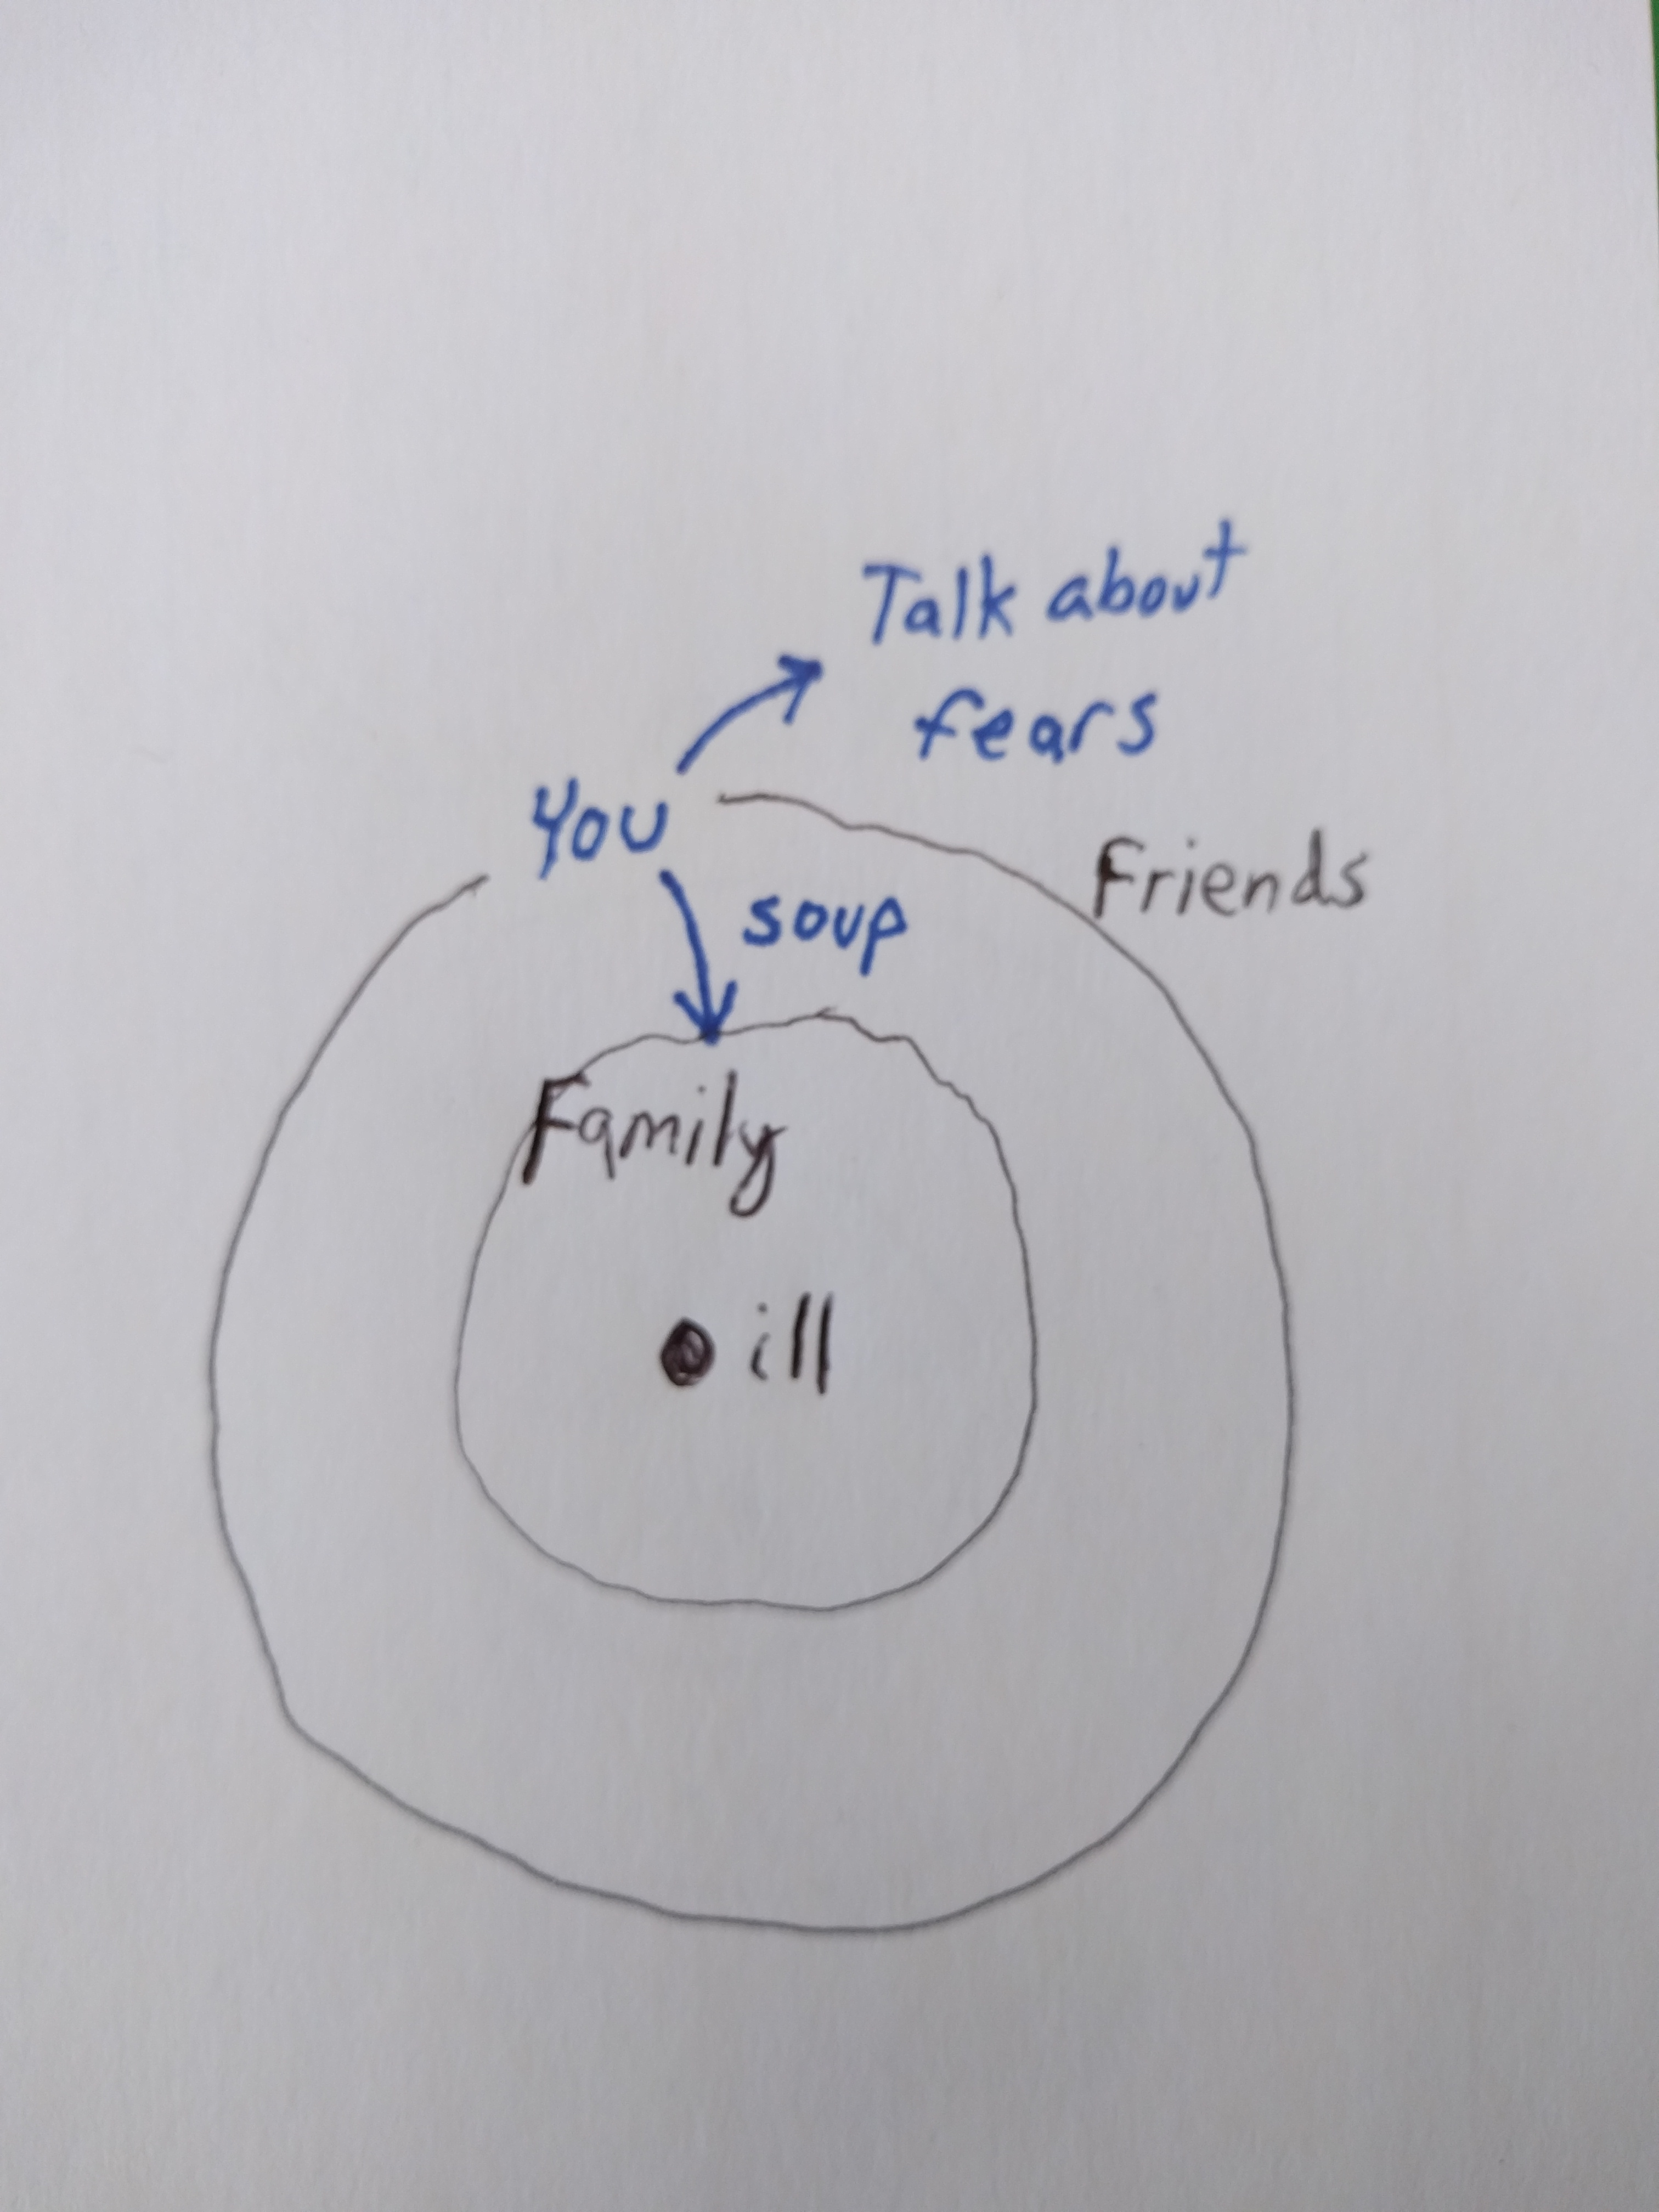 Talk about
fears
You
Friends
soup
Family
ill